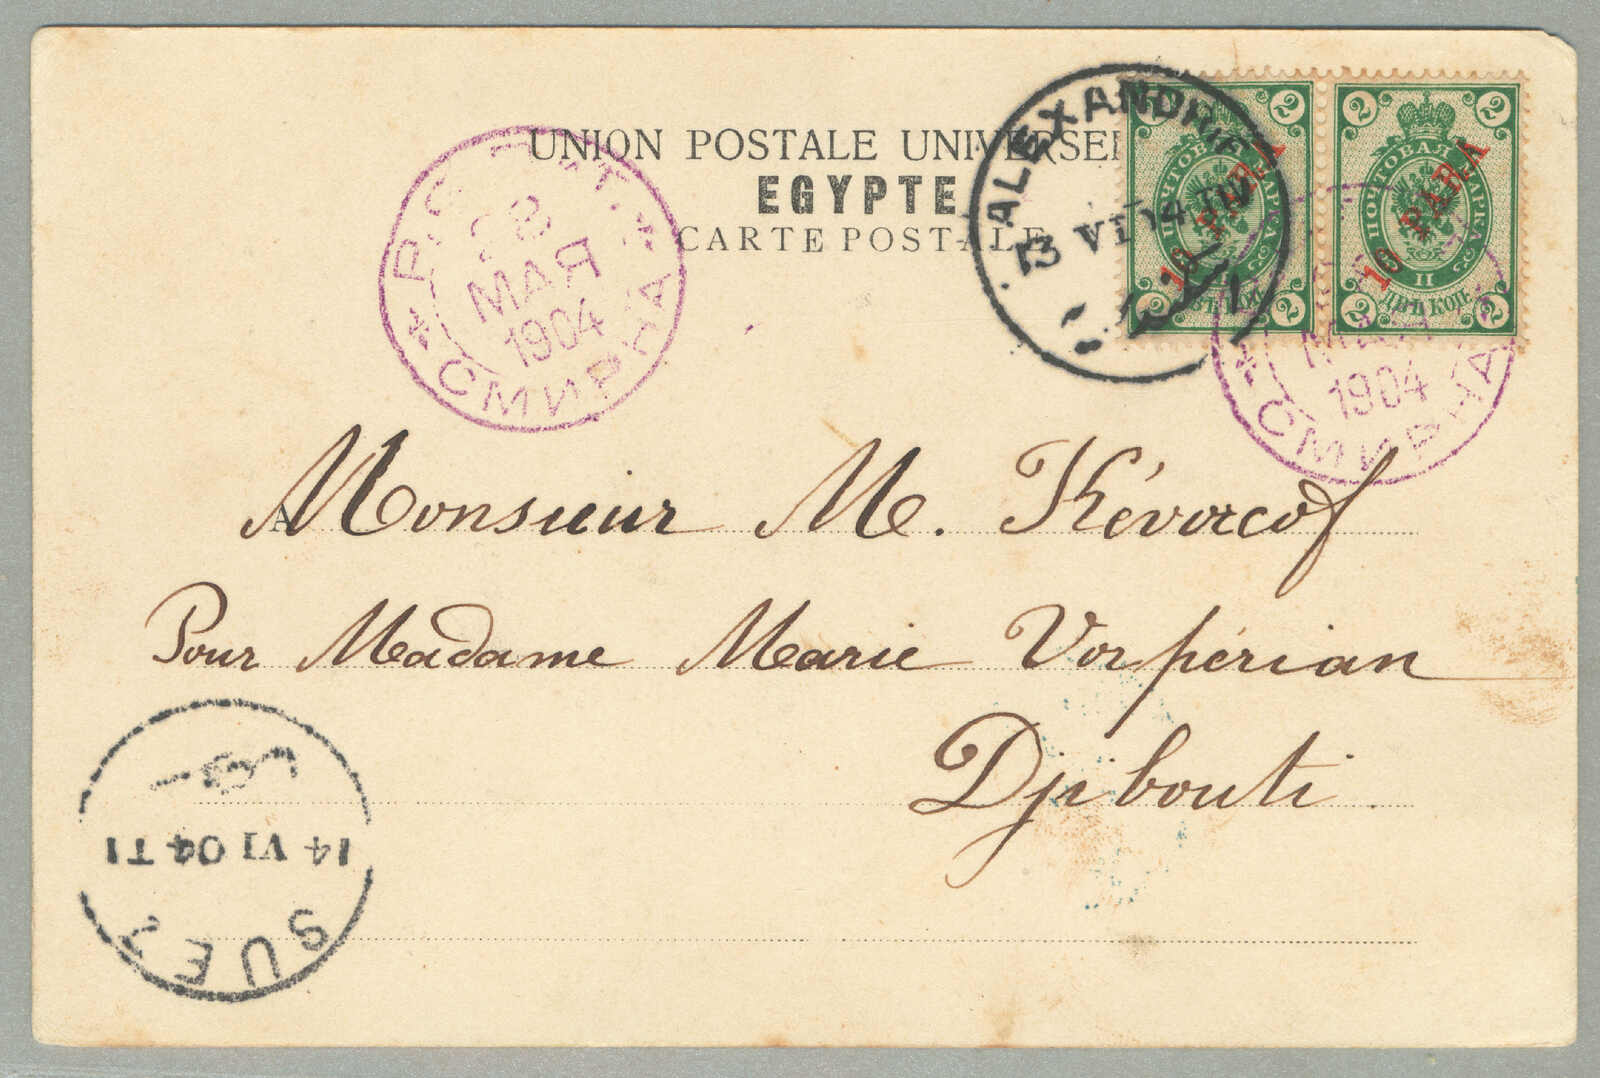 UNION POSTALE UNIVERSEL
EGYPTE
CARTE POSTALE
РО
28
МАЯ
1904
СМИРНА
ALEXANDRIE
13 VI 04
2 2
ПОЧТОВАЯ МАРКА
10 PARA
2 2
2 2
ПОЧТОВАЯ МАРКА
10 PARA
II
ДВѢ КОП.
2 2
МАЯ
1904
СМИРНА
A Monsieur M. Kévorcof
Pour Madame Marie Vorpérian
Djibouti
14 VI 04 T1
SUEZ